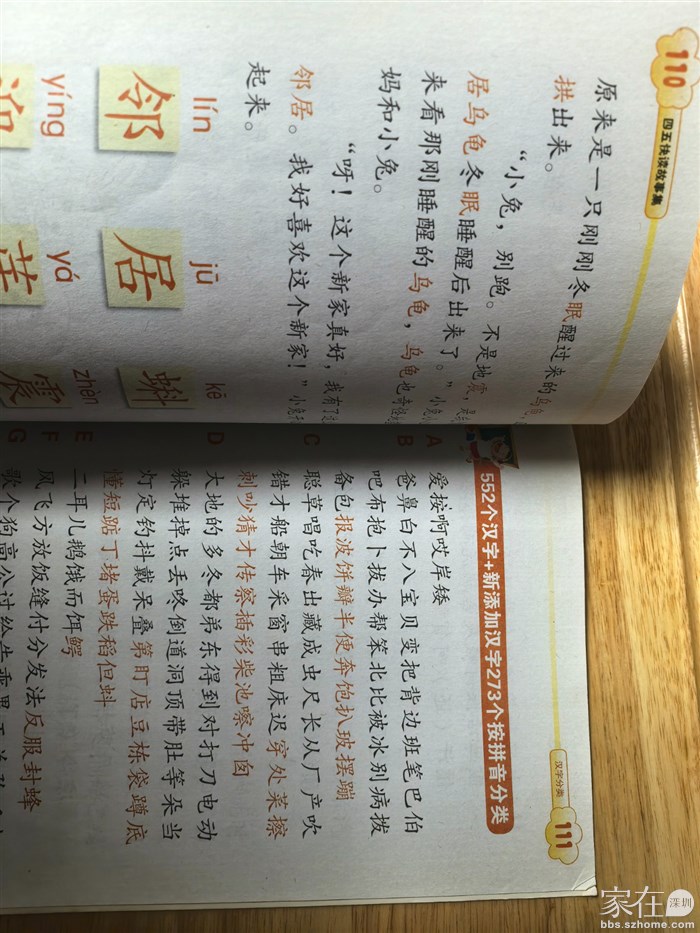 110
四五快读故事集
原来是一只刚刚冬眠醒过来的乌龟，
拱出来。
“小兔，别跑。不是地震，是
居乌龟冬眠睡醒后出来了。”小兔
来看那刚睡醒的乌龟，乌龟也奇怪
妈和小兔。
“呀！这个新家真好，我有了
邻居。我好喜欢这个新家！”小兔
起来。
lín
jū
kē
邻
居
蝌
yíng
yá
zhèn
迎
芽
震
汉字分类
111
552个汉字+新添加汉字273个按拼音分类
A
爱按啊哎岸矮
B
爸鼻白不八宝贝变把背边班笔巴伯
吧布抱卜拔办帮笨北比被冰别病拨
备包报波饼瓣半便奔饱扒玻摆蹦
C
聪草唱吃春出藏成虫尺长从厂产吹
错才船朝车采窗串粗床迟穿处菜擦
刺吵猜才传察插彩柴池嚓冲囱
D
大地的多冬都弟东得到对打刀电动
躲堆掉点丢咚倒道洞顶带肚等朵当
灯定钓抖戴呆叠第盯店豆栋袋蹲底
懂短踮丁堵蛋跌稻但蚪
E
二耳儿鹅饿而饵鳄
F
风飞方放饭缝付分发法反服封蜂
G
歌个狗高公过给
家在深圳
bbs.szhome.com